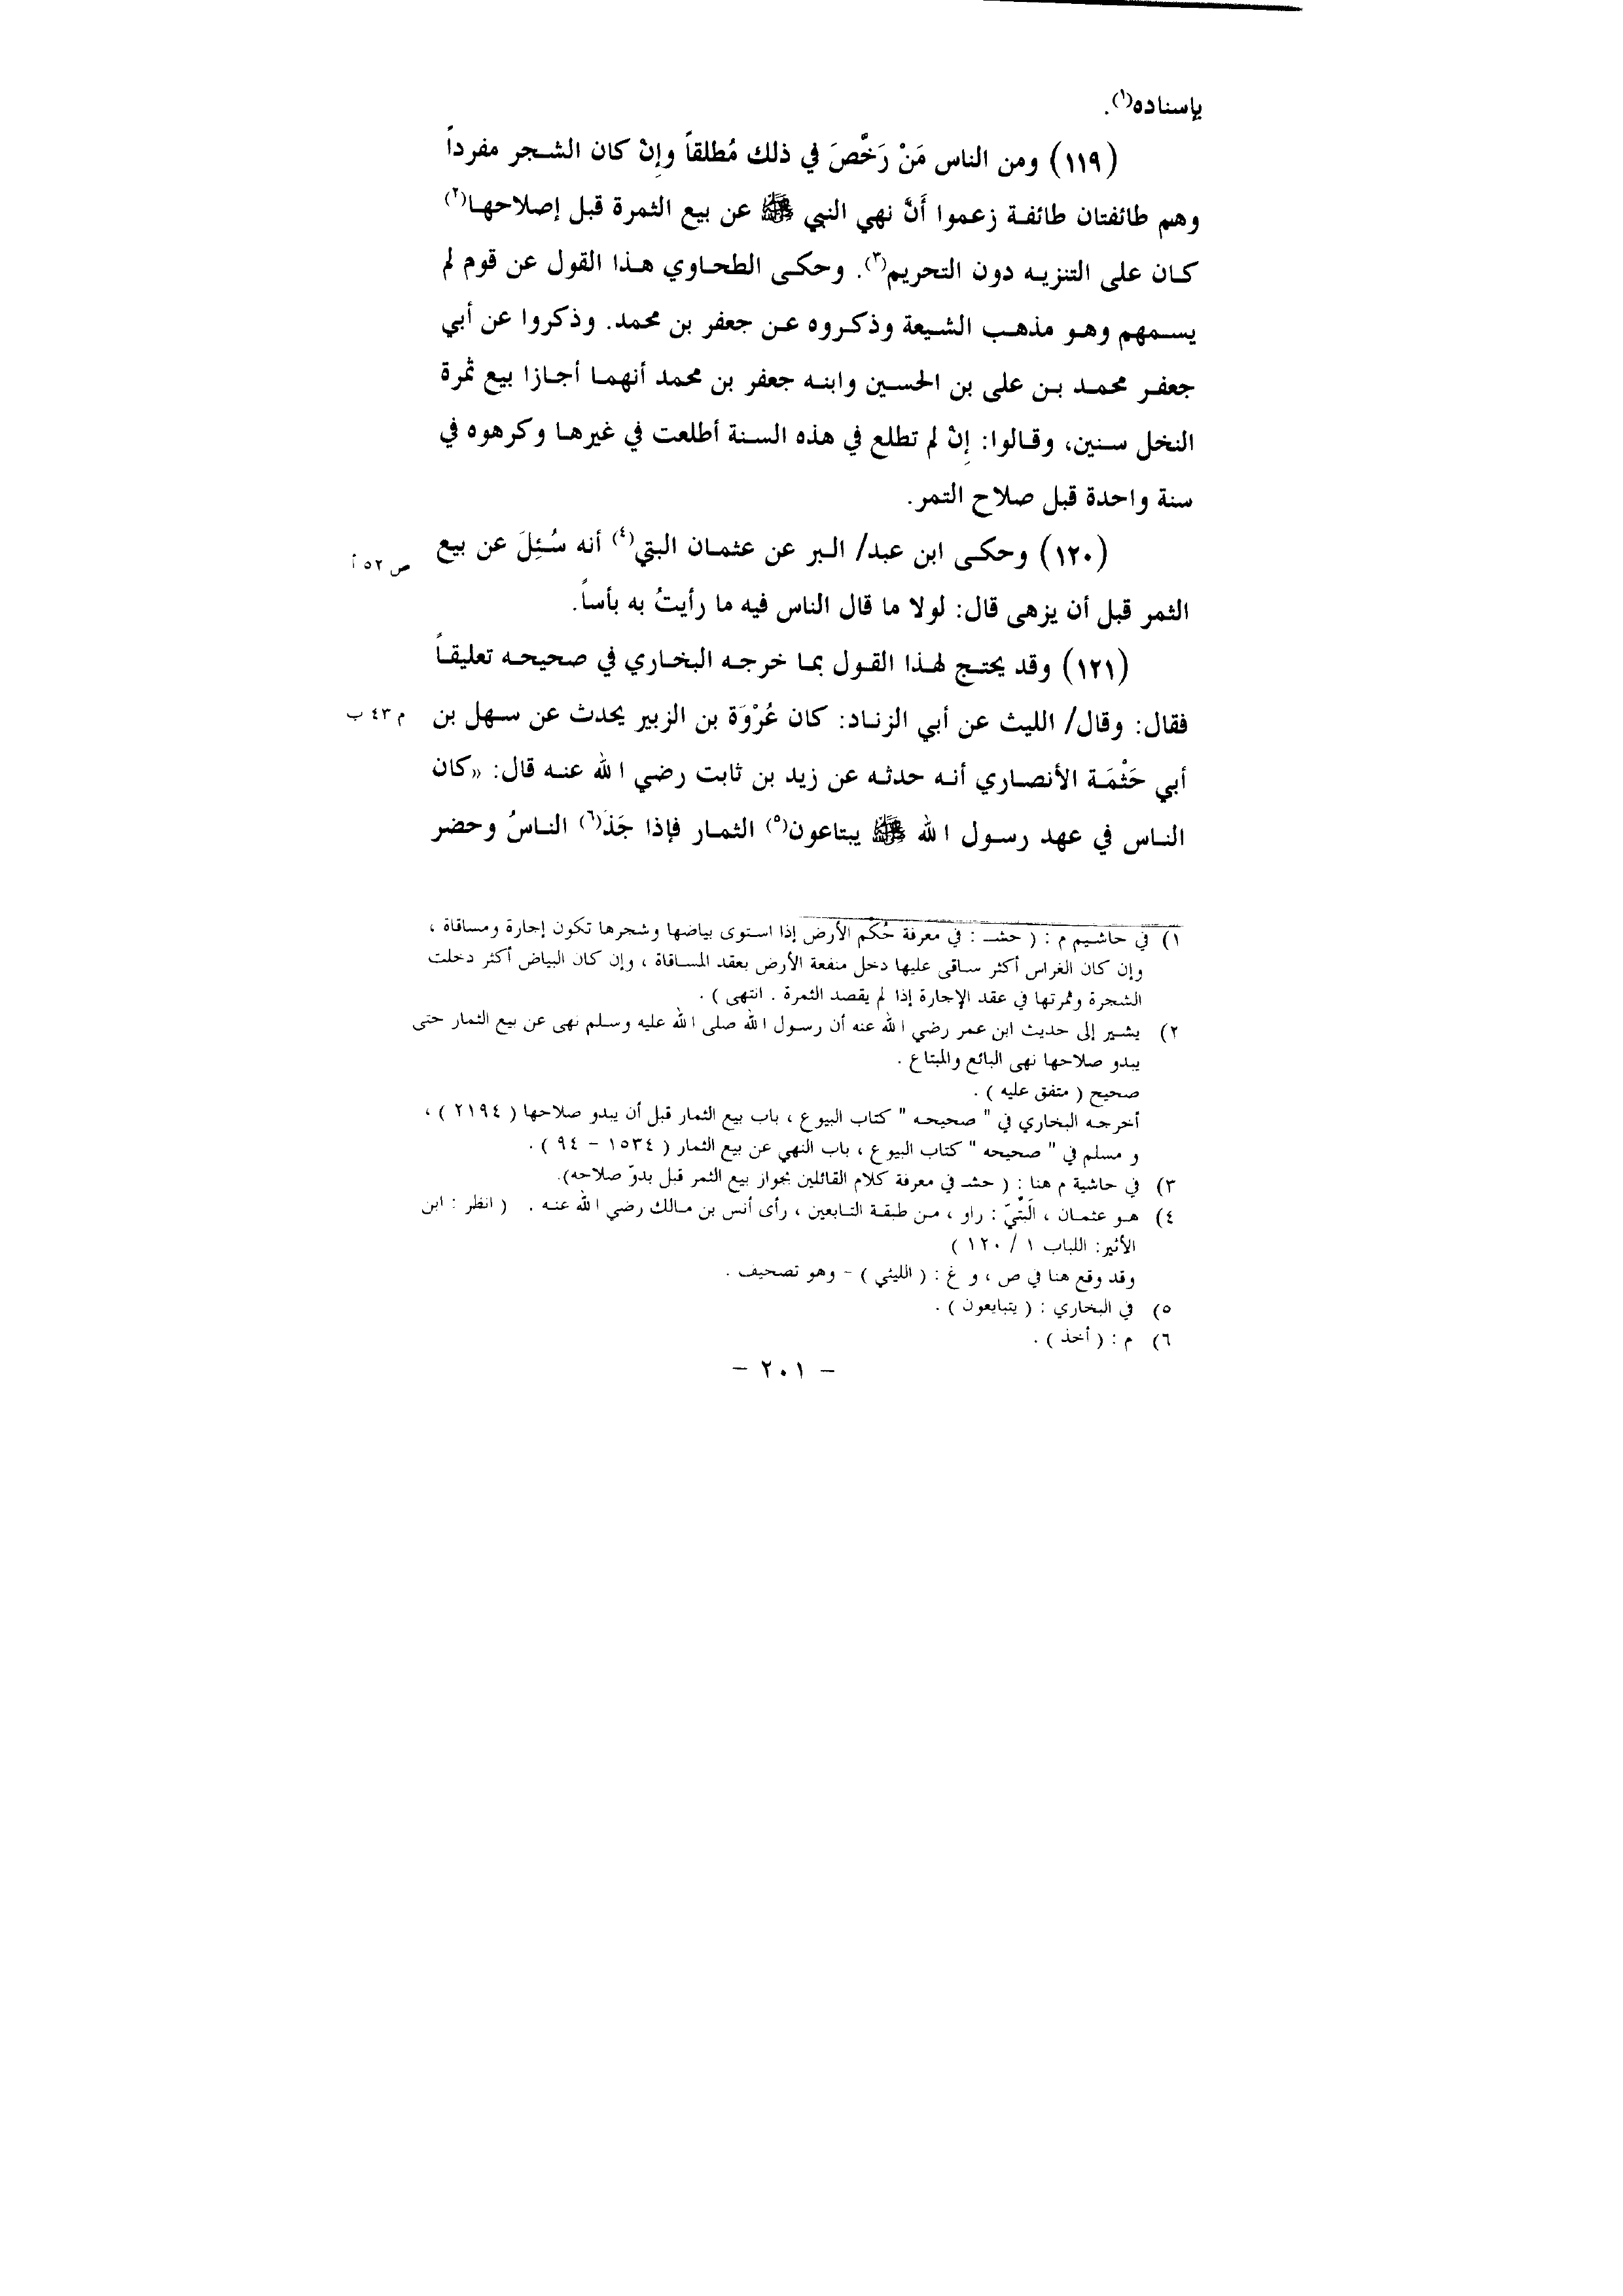 بإسناده(١).
(١١٩) ومن الناس مَنْ رَخَّصَ في ذلك مُطلقاً وإنْ كان الشجر مفرداً
وهم طائفتان طائفة زعموا أَنَّ نهي النبي ﷺ عن بيع الثمرة قبل إصلاحها(٢)
كان على التنزيه دون التحريم(٣). وحكى الطحاوي هذا القول عن قوم لم
يسمهم وهو مذهب الشيعة وذكروه عن جعفر بن محمد. وذكروا عن أبي
جعفر محمد بن على بن الحسين وابنه جعفر بن محمد أنهما أجازا بيع ثمرة
النخل سنين، وقالوا: إنْ لم تطلع في هذه السنة أطلعت في غيرها وكرهوه في
سنة واحدة قبل صلاح التمر.
(١٢٠) وحكى ابن عبد/ البر عن عثمان البتي(٤) أنه سُئِلَ عن بيع
ص ٥٢ أ
الثمر قبل أن يزهى قال: لولا ما قال الناس فيه ما رأيتُ به بأساً.
(١٢١) وقد يحتج لهذا القول بما خرجه البخاري في صحيحه تعليقاً
فقال: وقال/ الليث عن أبي الزناد: كان عُرْوَة بن الزبير يحدث عن سهل بن
م ٤٣ ب
أبي حَثْمَة الأنصاري أنه حدثه عن زيد بن ثابت رضي الله عنه قال: «كان
الناس في عهد رسول الله ﷺ يبتاعون(٥) الثمار فإذا جَذَ(٦) الناسُ وحضر
١) في حاشيم م : ( حشـ : في معرفة حُكْم الأرض إذا استوى بياضها وشجرها تكون إجارة ومساقاة ،
وإن كان الغراس أكثر ساقى عليها دخل منفعة الأرض بعقد المساقاة ، وإن كان البياض أكثر دخلت
الشجرة وثمرتها في عقد الإجارة إذا لم يقصد الثمرة . انتهى ) .
٢) يشير إلى حديث ابن عمر رضي الله عنه أن رسول الله صلى الله عليه وسلم نهى عن بيع الثمار حتى
يبدو صلاحها نهى البائع والمبتاع .
صحيح ( متفق عليه ) .
أخرجه البخاري في " صحيحه " كتاب البيوع ، باب بيع الثمار قبل أن يبدو صلاحها ( ٢١٩٤ ) ،
و مسلم في " صحيحه " كتاب البيوع ، باب النهي عن بيع الثمار ( ١٥٣٤ - ٩٤ ) .
٣) في حاشية م هنا : ( حشـ في معرفة كلام القائلين بجواز بيع الثمر قبل بدوّ صلاحه).
٤) هو عثمان ، الَبَتّيّ : راو ، من طبقة التابعين ، رأى أنس بن مالك رضي الله عنه . ( انظر : ابن
الأثير: اللباب ١ / ١٢٠ )
وقد وقع هنا في ص ، و غ : ( الليثي ) - وهو تصحيف .
٥) في البخاري : ( يتبايعون ) .
٦) م : ( أخذ ) .
- ٢٠١ -